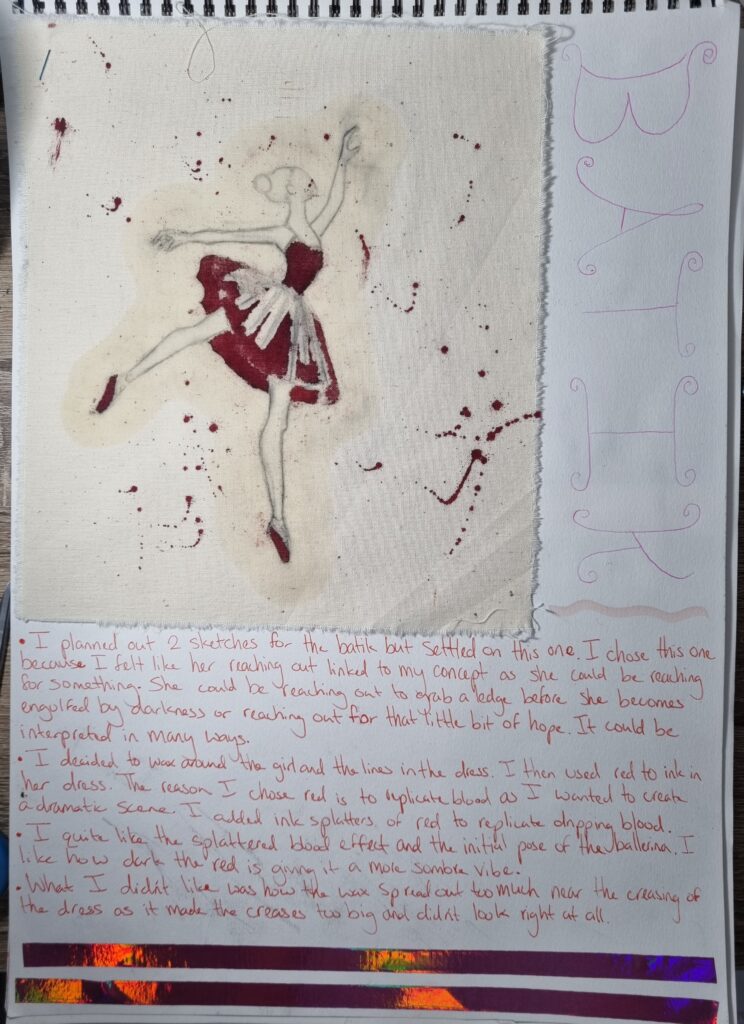 BATIK
• I planned out 2 sketches for the batik but settled on this one. I chose this one
because I felt like her reaching out linked to my concept as she could be reaching
for something. She could be reaching out to grab a ledge before she becomes
engulfed by darkness or reaching out for that little bit of hope. It could be
interpreted in many ways.
• I decided to wax around the girl and the lines in the dress. I then used red to ink in
her dress. The reason I chose red is to replicate blood as I wanted to create
a dramatic scene. I added ink splatters of red to replicate dripping blood.
• I quite like the splattered blood effect and the initial pose of the ballerina. I
like how dark the red is giving it a more sombre vibe.
• What I didn't like was how the wax spread out too much near the creasing of
the dress as it made the creases too big and didn't look right at all.